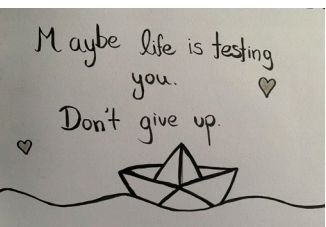 Maybe life is testing
you.
Don't give up.